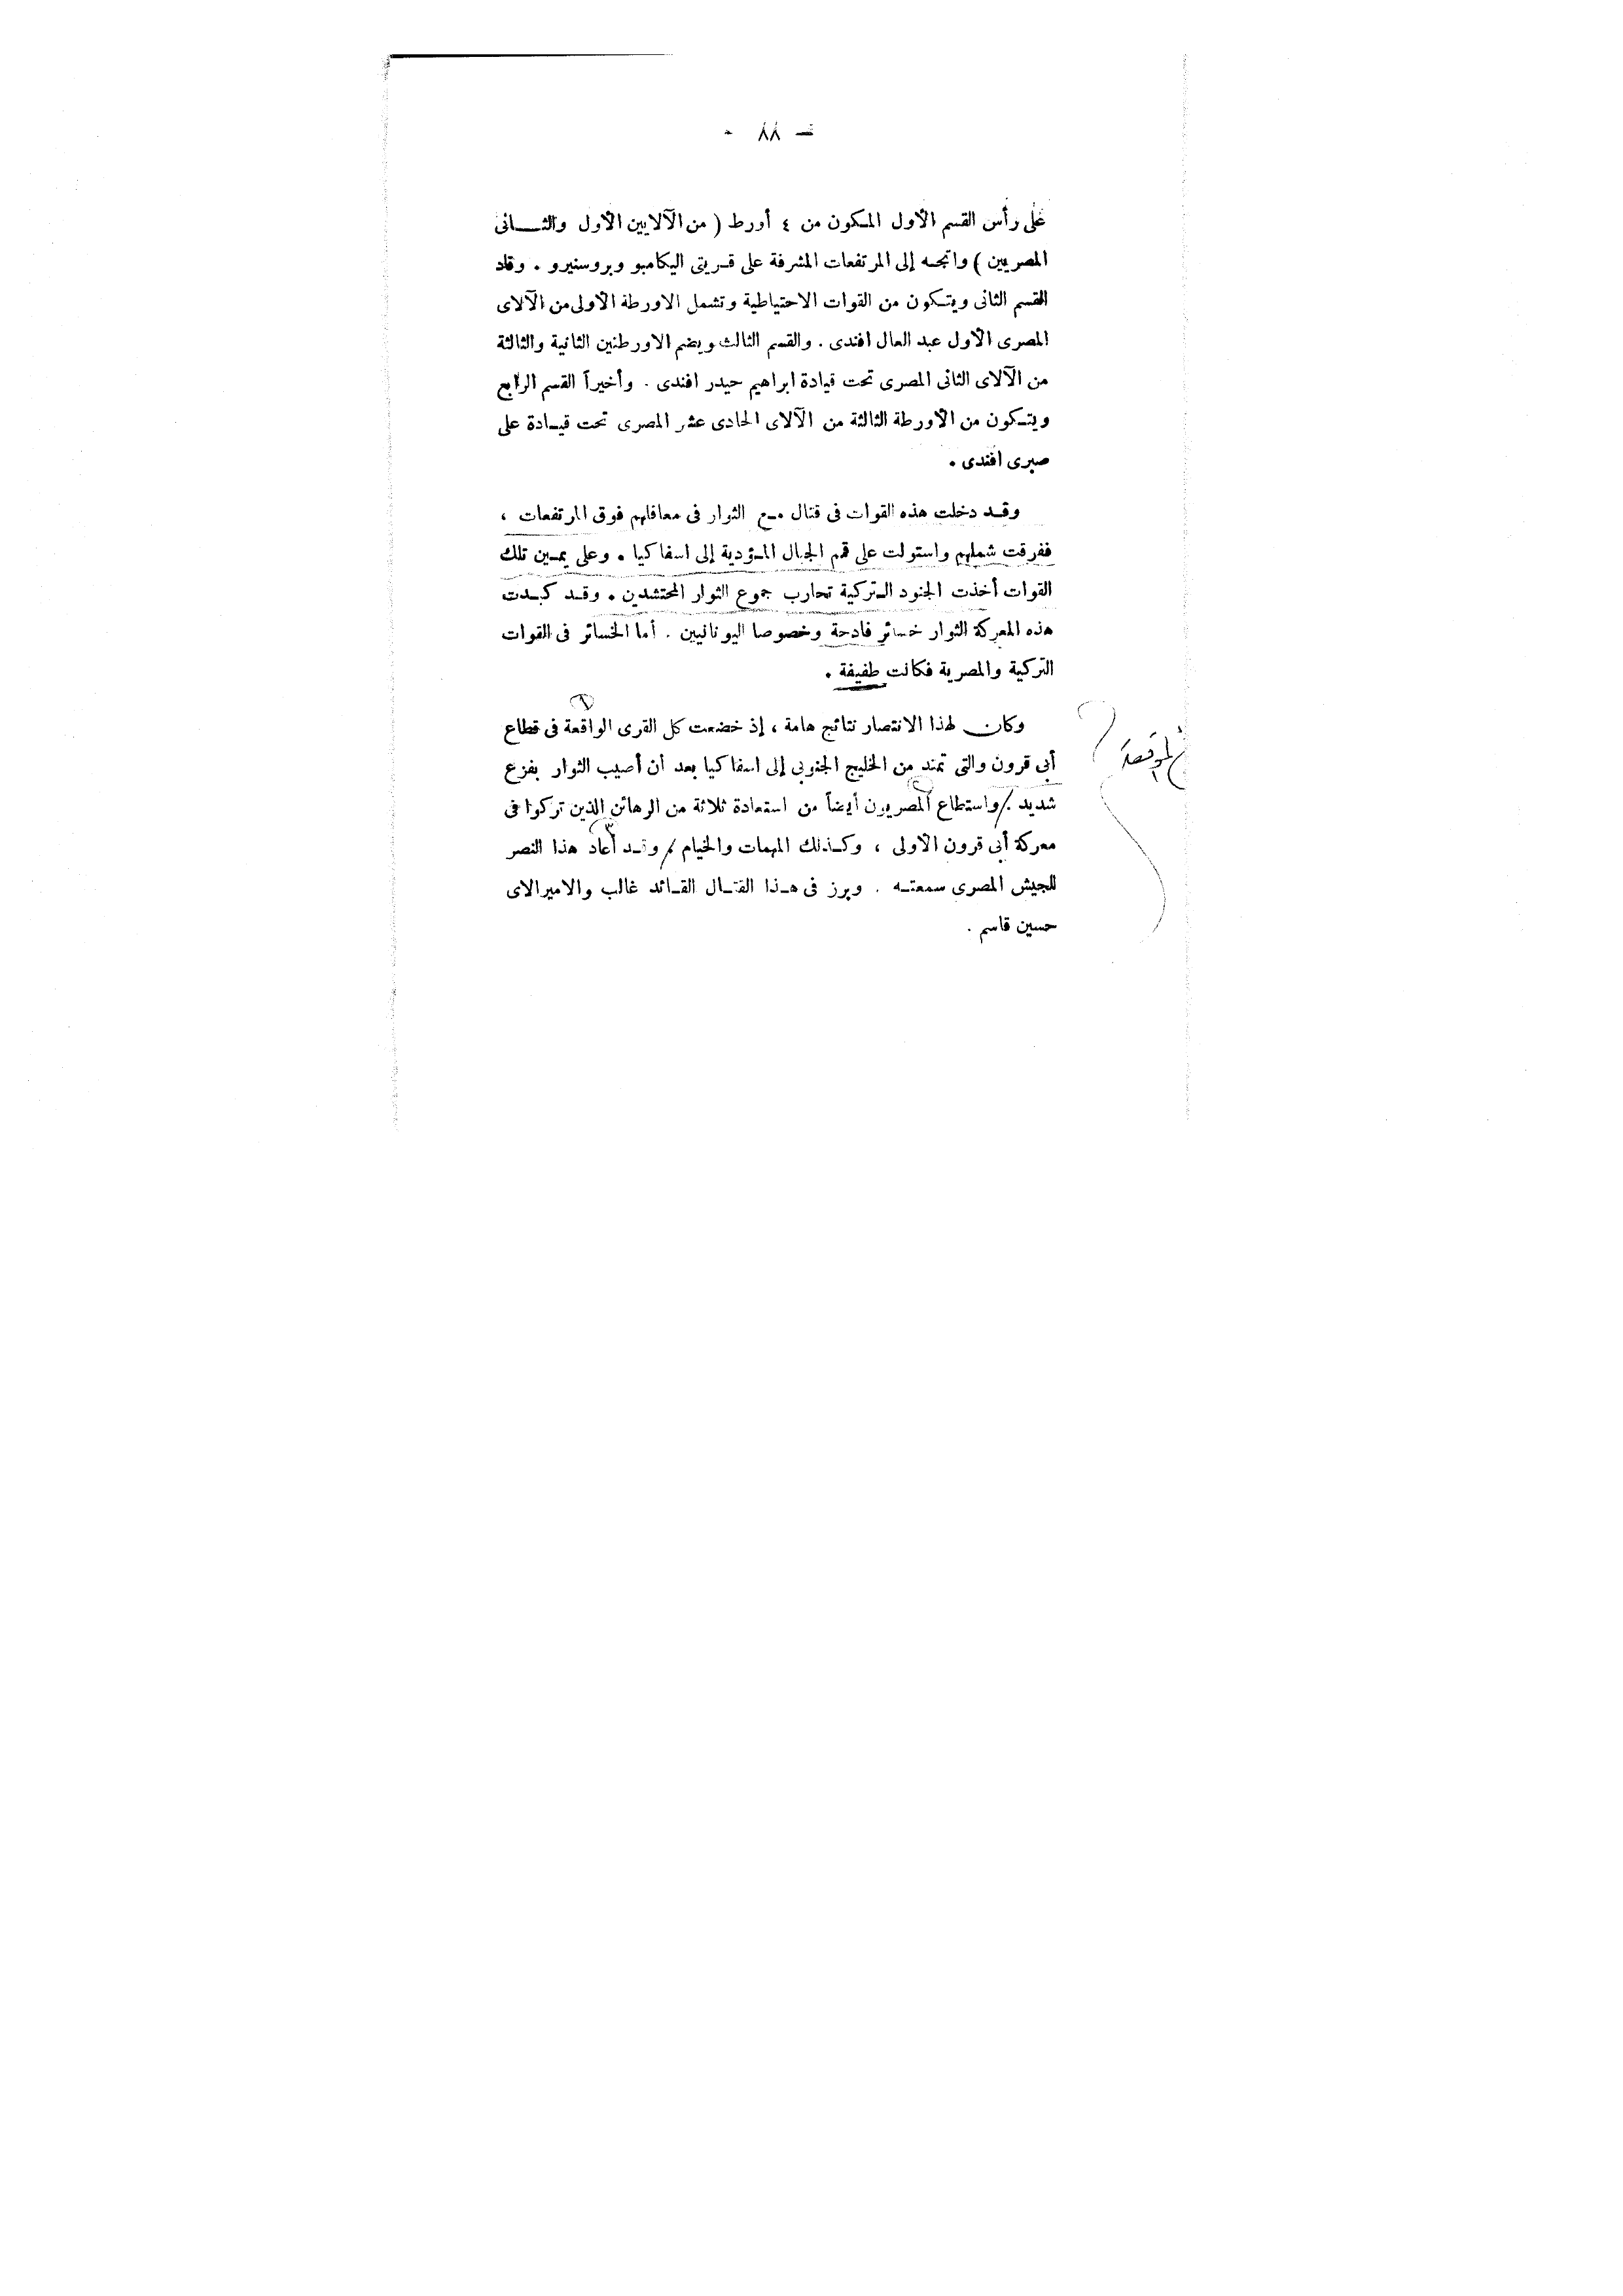 — ٨٨ -
على رأس القسم الأول المكون من ٤ أورط ( من الآلايين الأول والثـــانى
المصريين ) واتجه إلى المرتفعات المشرفة على قريتى اليكامبو وبروسنيرو . وقاد
القسم الثانى ويتكون من القوات الاحتياطية وتشمل الاورطة الأولى من الآلاى
المصرى الأول عبد العال افندى . والقسم الثالث ويضم الاورطتين الثانية والثالثة
من الآلاى الثانى المصرى تحت قيادة ابراهيم حيدر افندى . وأخيراً القسم الرابع
ويتكون من الأورطة الثالثة من الآلاى الحادى عشر المصرى تحت قيادة على
صبرى افندى .
وقد دخلت هذه القوات فى قتال مع الثوار فى معاقلهم فوق المرتفعات ،
ففرقت شملهم واستولت على قمم الجبال المؤدية إلى اسفاكيا . وعلى يمين تلك
القوات أخذت الجنود التركية تحارب جموع الثوار المحتشدين . وقد كبدت
هذه المعركة الثوار خسائر فادحة وخصوصا اليونانيين . أما الخسائر فى القوات
التركية والمصرية فكانت طفيفة .
وكان لهذا الانتصار نتائج هامة ، إذ خضعت كل القرى الواقعة فى قطاع
أبى قرون والتى تمتد من الخليج الجنوبى إلى اسفاكيا بعد أن أصيب الثوار بفزع
شديد . واستطاع المصريون أيضاً من استعادة ثلاثة من الرهائن الذين تركوا فى
معركة أبى قرون الأولى ، وكذلك المهمات والخيام . وقد أعاد هذا النصر
للجيش المصرى سمعته . وبرز فى هذا القتال القائد غالب والاميرالاى
حسين قاسم .